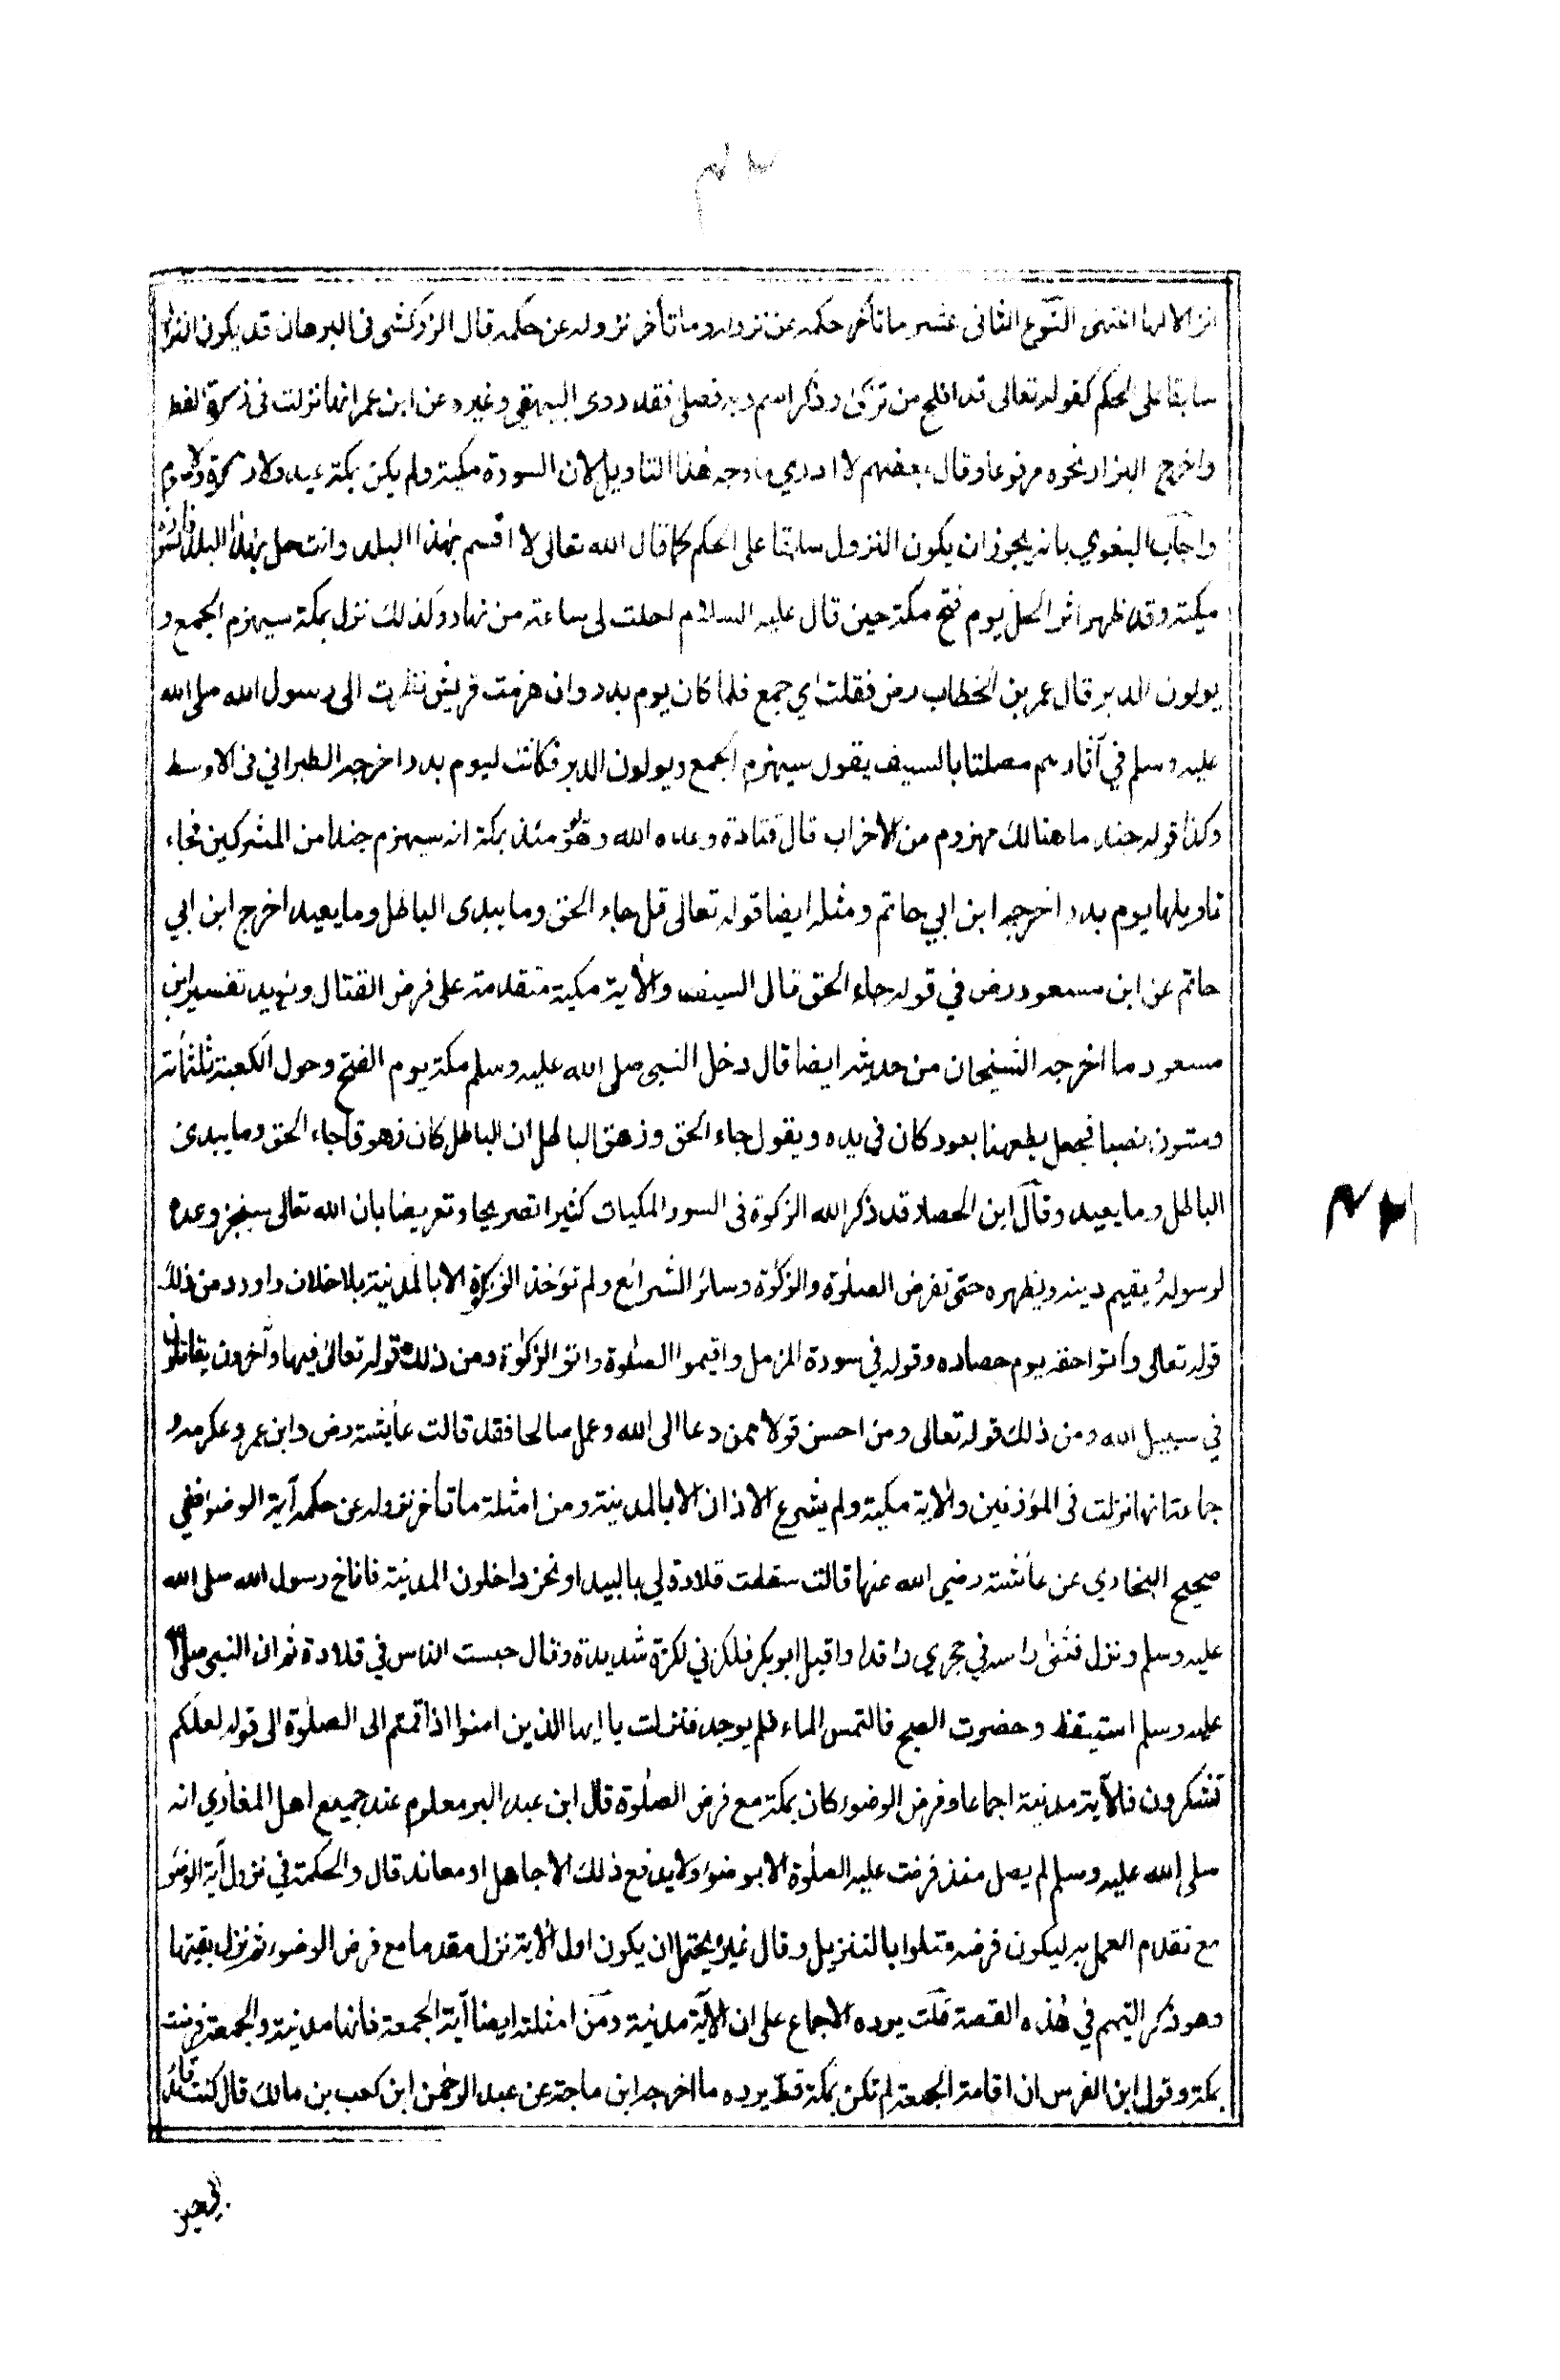 انزالا لها انتهى النوع الثانى عشر ما تأخر حكمه عن نزوله وما تأخر نزوله عن حكمه قال الزركشى فى البرهان قد يكون النزول
سابقا على الحكم كقوله تعالى قد افلح من تزكى وذكر اسم ربه فصلى فقد روى البيهقي وغيره عن ابن عمر انها نزلت فى زكوة الفطر
واخرج البزار نحوه مرفوعا وقال بعضهم لا ادري ما وجه هذا التاويل لان السورة مكية ولم يكن بمكة عيد ولا زكوة ولا صوم
واجاب البغوي بانه يجوز ان يكون النزول سابقا على الحكم كما قال الله تعالى لا اقسم بهذا البلد وانت حل بهذا البلد فالسورة
مكية وقد ظهر اثر الحل يوم فتح مكة حين قال عليه السلام احلت لى ساعة من نهار وكذلك نزل بمكة سيهزم الجمع و
يولون الدبر قال عمر بن الخطاب رض فقلت اي جمع فلما كان يوم بدر وان هزمت قريش نظرت الى رسول الله صلى الله
عليه وسلم في آثارهم مصلتا بالسيف يقول سيهزم الجمع ويولون الدبر فكانت ليوم بدر اخرجه الطبراني فى الاوسط
وكذا قوله جند ما هنالك مهزوم من الاحزاب قال قتادة وعده الله وهو يومئذ بمكة انه سيهزم جندا من المشركين فجاء
تاويلها يوم بدر اخرجه ابن ابي حاتم ومثله ايضا قوله تعالى قل جاء الحق وما يبدى الباطل وما يعيد اخرج ابن ابي
حاتم عن ابن مسعود رض في قوله جاء الحق قال السيف والآية مكية متقدمة على فرض القتال ويؤيد تفسير ابن
مسعود ما اخرجه الشيخان من حديثه ايضا قال دخل النبى صلى الله عليه وسلم مكة يوم الفتح وحول الكعبة ثلثمأتة
وستون نصبا فجعل يطعنها بعود كان فى يده ويقول جاء الحق وزهق الباطل ان الباطل كان زهوقا جاء الحق وما يبدئ
الباطل وما يعيد وقال ابن الحصار قد ذكر الله الزكوة فى السور المكيات كثيرا تصريحا وتعريضا بان الله تعالى سينجز وعده
لرسوله ويقيم دينه ويظهره حتى تفرض الصلوة والزكوة وسائر الشرائع ولم تؤخذ الزكوة الا بالمدنية بلا خلاف واورد من ذلك
قوله تعالى وآتوا حقه يوم حصاده وقوله في سورة المزمل واقيموا الصلوة واتوا الزكوة ومن ذلك قوله تعالى فيها وآخرون يقاتلون
في سبيل الله ومن ذلك قوله تعالى ومن احسن قولا ممن دعا الى الله وعمل صالحا فقد قالت عائشة رض وابن عمر وعكرمة و
جماعة انها نزلت فى المؤذنين والاية مكية ولم يشرع الاذان الا بالمدينة ومن امثلة ما تأخر نزوله عن حكمه آية الوضؤ ففي
صحيح البخاري عن عائشة رضي الله عنها قالت سقطت قلادة لي بالبيداء ونحن داخلون المدنية فاناخ رسول الله صلى الله
عليه وسلم ونزل فثنى راسه في حجري راقدا واقبل ابو بكر فلكزني لكزة شديدة وقال حبست الناس في قلادة ثم ان النبي صلى الله
عليه وسلم استيقظ وحضرت الصبح فالتمس الماء فلم يوجد فنزلت يا ايها الذين امنوا اذا قمتم الى الصلوة الى قوله لعلكم
تشكرون فالآية مدنية اجماعا وفرض الوضوء كان بمكة مع فرض الصلوة قال ابن عبد البر معلوم عند جميع اهل المغازي انه
صلى الله عليه وسلم لم يصل منذ فرضت عليه الصلوة الا بوضوء ولا يدفع ذلك الا جاهل او معاند قال والحكمة في نزول آية الوضؤ
مع تقدم العمل به ليكون فرضه متلوا بالتنزيل وقال غيره يحتمل ان يكون اول الآية نزل مقدما مع فرض الوضوء ثم نزل بقيتها
وهو ذكر التيمم في هذه القصة قلت يرده الاجماع على ان الآية مدنية ومن امثلته ايضا آية الجمعة فانها مدنية والجمعة فرضت
بمكة وقول ابن الفرس ان اقامة الجمعة لم تكن بمكة قط يرده ما اخرجه ابن ماجة عن عبد الرحمن ابن كعب بن مالك قال كنت قائد
ابي حين